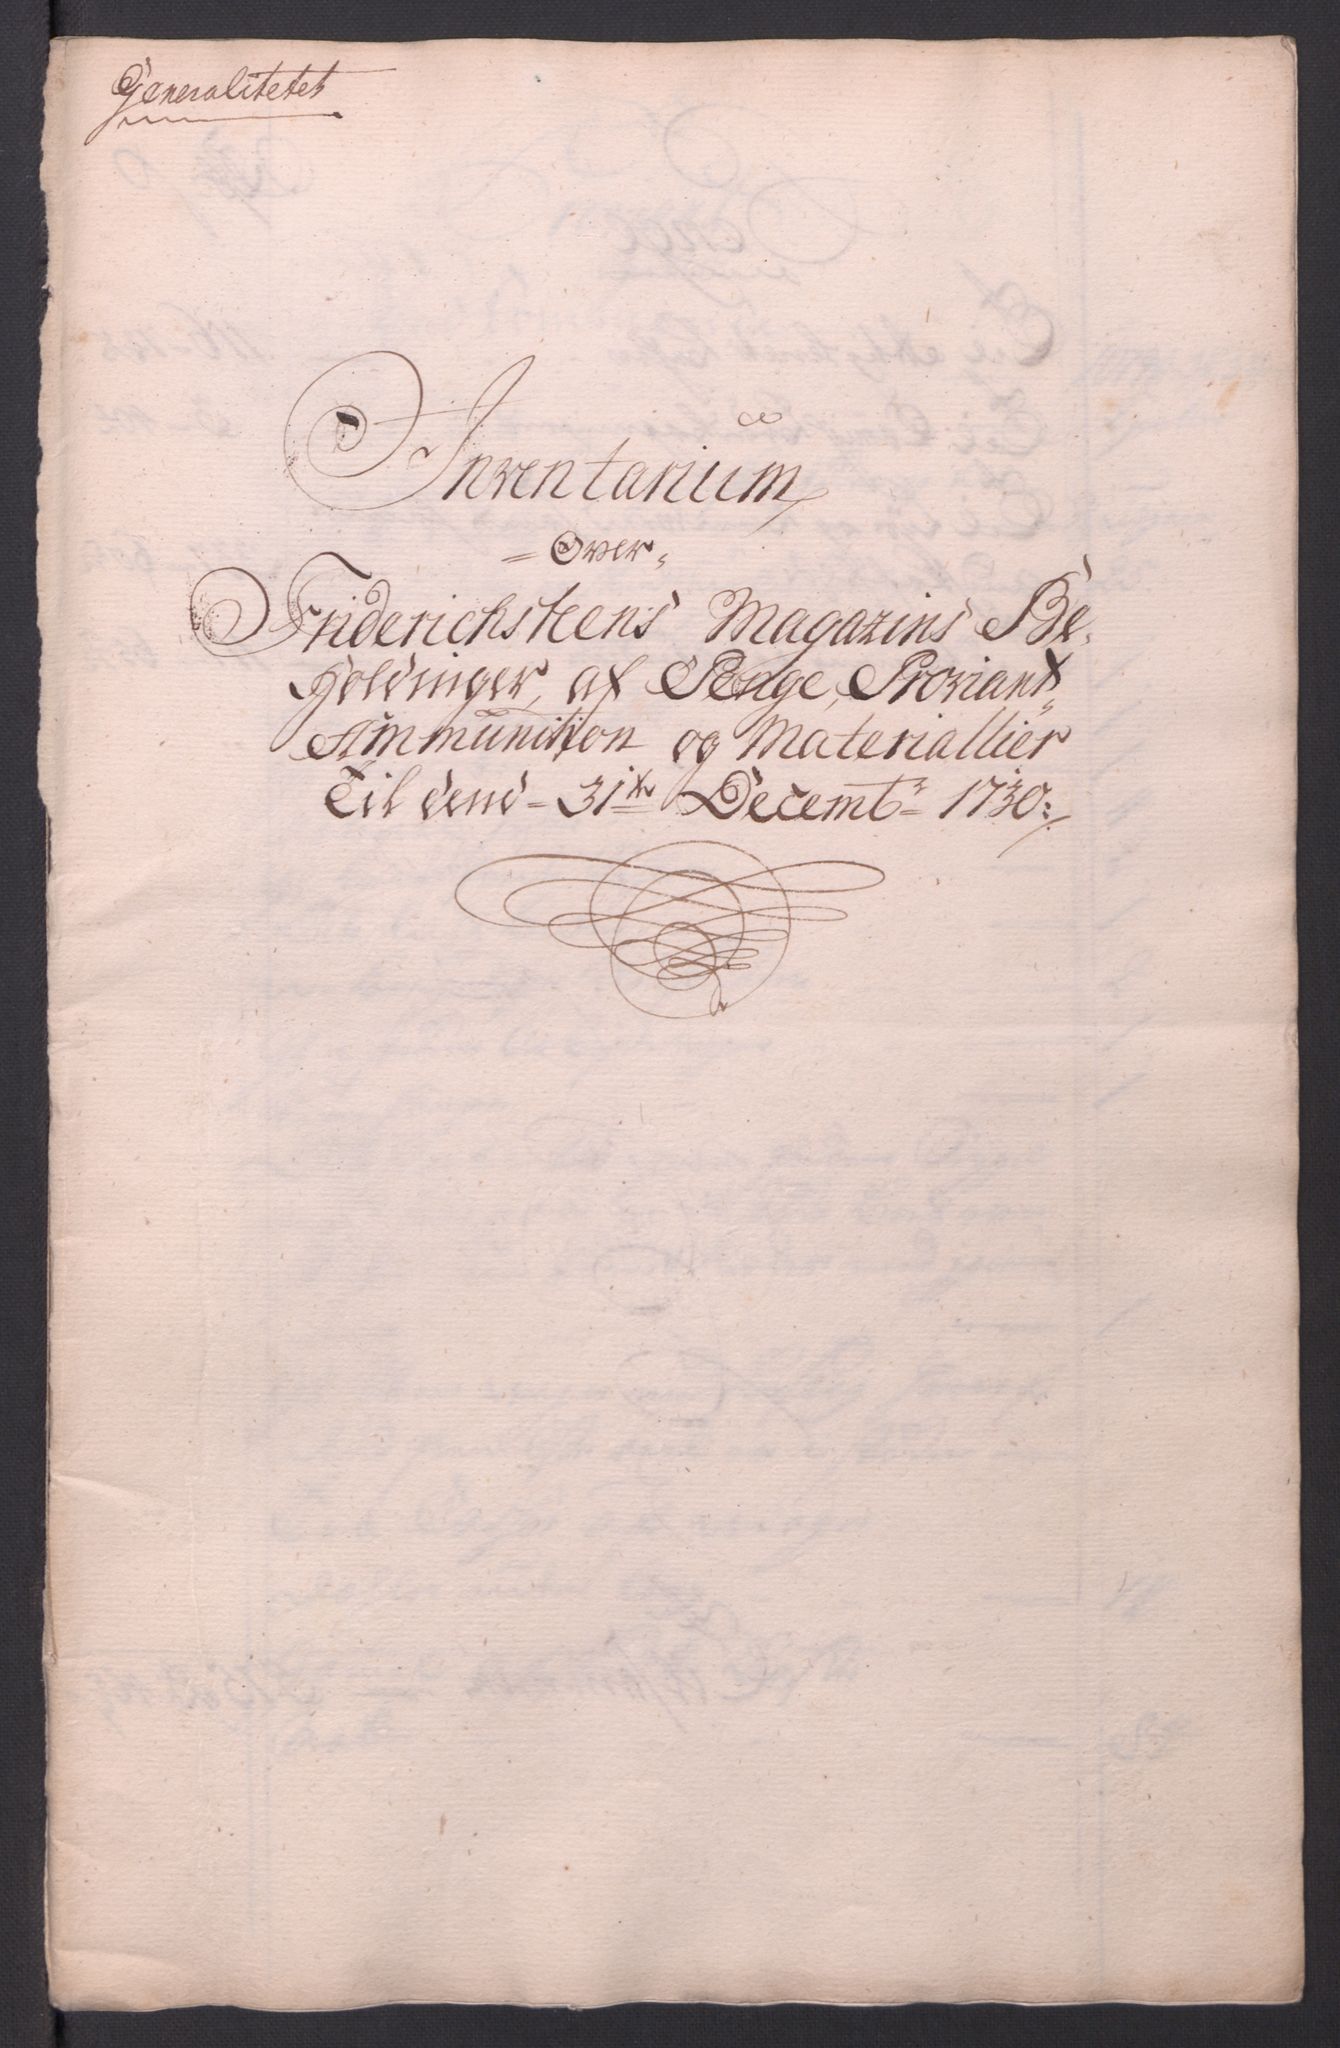 Generalitetet
Inventarium
= Over =
Friderichsteens Magazins Be-
holdninger, af Penge, Proviant
Ammunition og Materiallier
Til dend - 31te Decembr 1730: